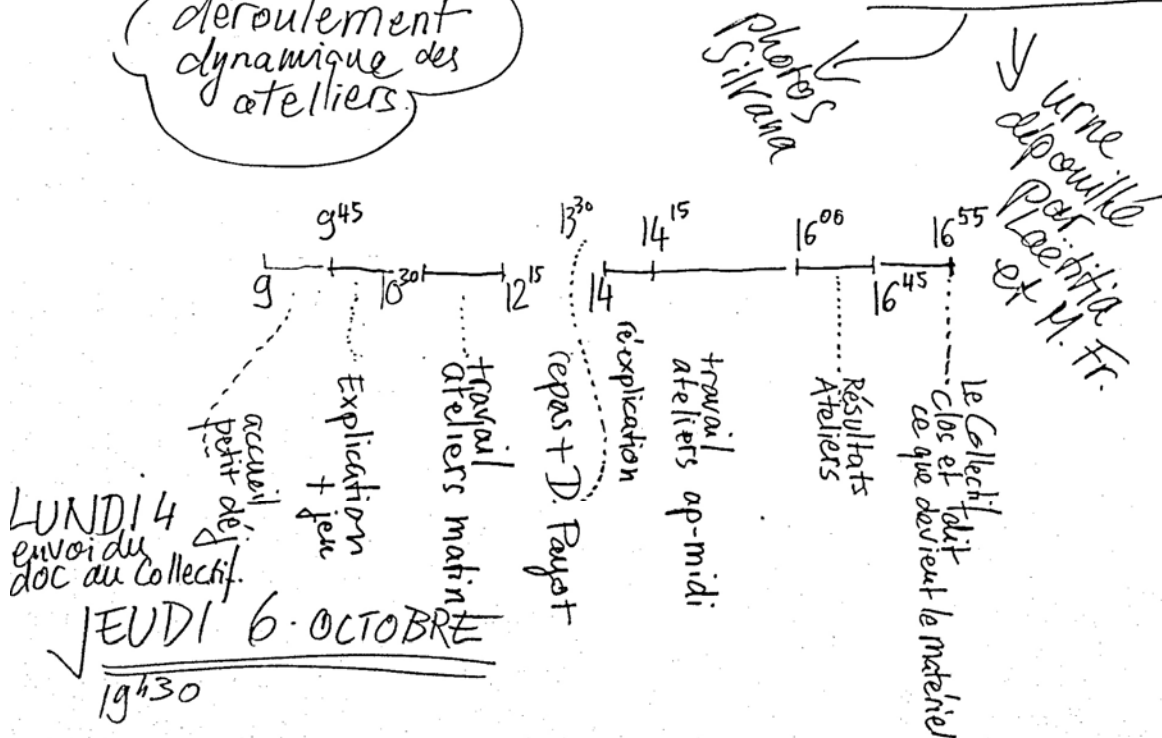 déroulement
dynamique des
atelliers.
photos
Silvana
urne
dépouillé
par
Laëtitia
et M. Fr.
9
9⁴⁵
10³⁰
12¹⁵
13³⁰
14
14¹⁵
16⁰⁰
16⁴⁵
16⁵⁵
accueil
petit déj
Explication
+ jeu
travail
ateliers matin
repas + D. Payot
réexplication
travail
ateliers ap-midi
Résultats
Ateliers
Le Collectif
clos et dit
ce que devient le matériel
LUNDI 4
envoi du
doc au Collectif.
JEUDI 6. OCTOBRE
19ʰ30